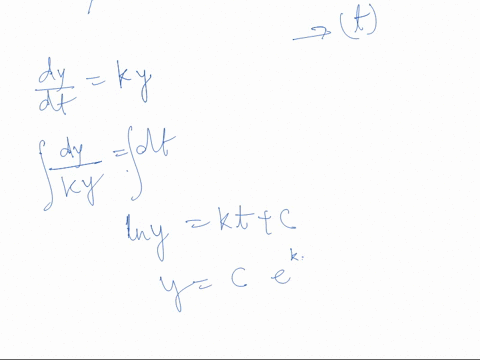 → (t)
dy/dt = ky
∫ dy/ky = ∫ dt
ln y = kt + C
y = C e^k.